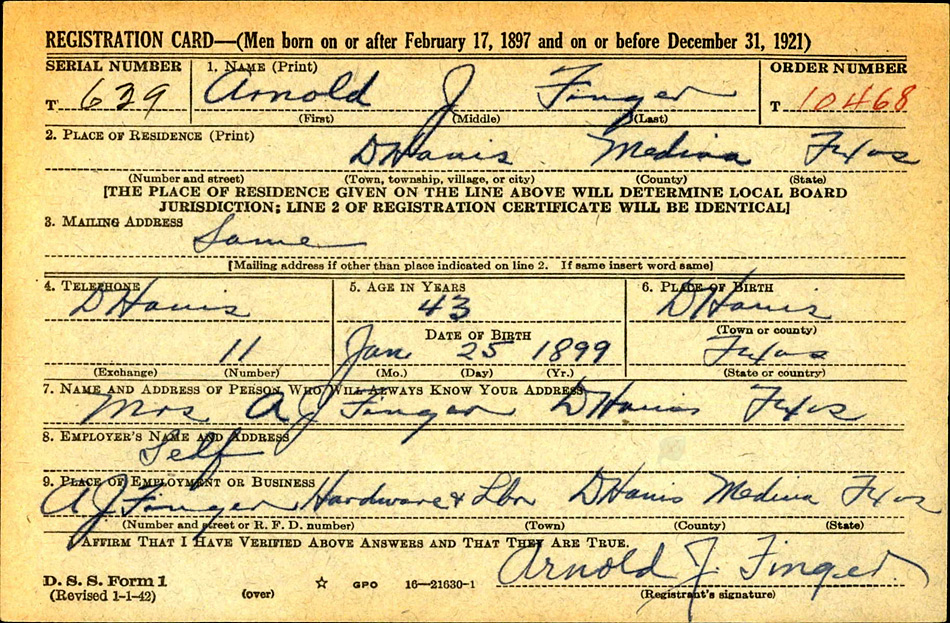 REGISTRATION CARD—(Men born on or after February 17, 1897 and on or before December 31, 1921)
SERIAL NUMBER 1. NAME (Print) ORDER NUMBER
T 639 Arnold J Finger T 10468
(First) (Middle) (Last)
2. PLACE OF RESIDENCE (Print)
D'Hanis Medina Texas
(Number and street) (Town, township, village, or city) (County) (State)
[THE PLACE OF RESIDENCE GIVEN ON THE LINE ABOVE WILL DETERMINE LOCAL BOARD
JURISDICTION; LINE 2 OF REGISTRATION CERTIFICATE WILL BE IDENTICAL]
3. MAILING ADDRESS
Same
[Mailing address if other than place indicated on line 2. If same insert word same]
4. TELEPHONE 5. AGE IN YEARS 6. PLACE OF BIRTH
D Hanis 43 D Hanis
DATE OF BIRTH (Town or county)
11 Jan 25 1899 Texas
(Exchange) (Number) (Mo.) (Day) (Yr.) (State or country)
7. NAME AND ADDRESS OF PERSON WHO WILL ALWAYS KNOW YOUR ADDRESS
Mrs A J Finger D Hanis Texas
8. EMPLOYER'S NAME AND ADDRESS
Self
9. PLACE OF EMPLOYMENT OR BUSINESS
A J Finger Hardware & Lbr D Hanis Medina Texas
(Number and street or R. F. D. number) (Town) (County) (State)
I AFFIRM THAT I HAVE VERIFIED ABOVE ANSWERS AND THAT THEY ARE TRUE.
Arnold J. Finger
D. S. S. Form 1
(Revised 1-1-42) (over) ☆ GPO 16—21630-1 (Registrant's signature)